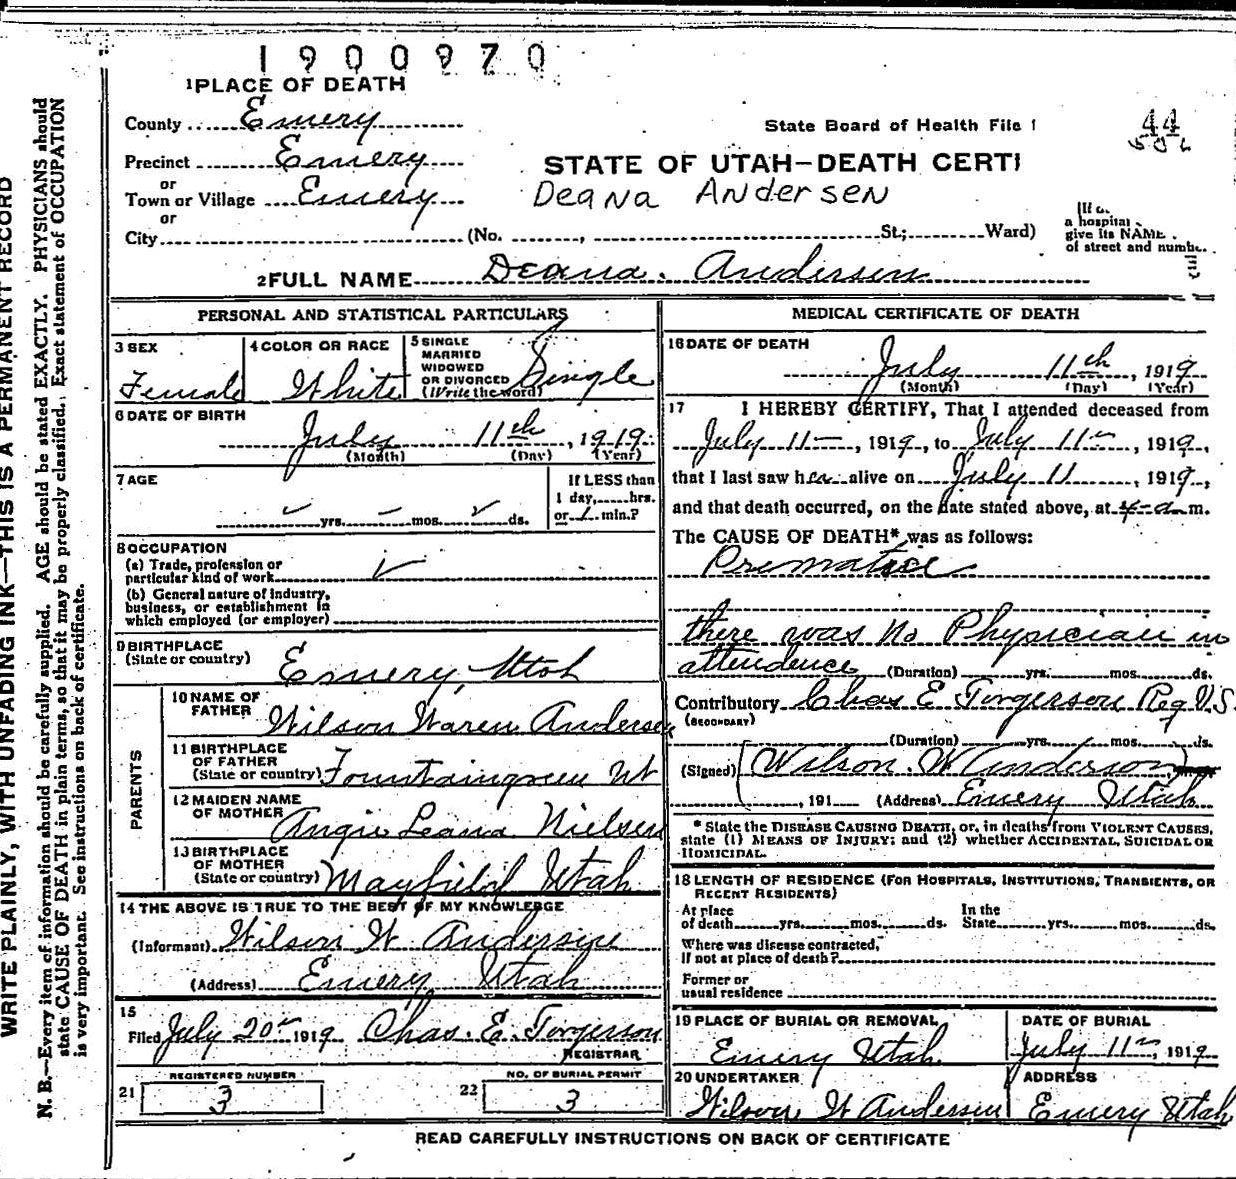 1900970
1 PLACE OF DEATH
County Emery
State Board of Health File
44
Precinct Emery
STATE OF UTAH—DEATH CERTI
or
Town or Village Emery
Deana Andersen
or
City (No. , St.; Ward)
a hospital
give its NAME
of street and numbe
2 FULL NAME Deana. Andersen
PERSONAL AND STATISTICAL PARTICULARS
3 SEX
Female
4 COLOR OR RACE
White
5 SINGLE
MARRIED
WIDOWED
OR DIVORCED
(Write the word)
Single
6 DATE OF BIRTH
July 11th, 1919.
(Month) (Day) (Year)
7 AGE
yrs. mos. ds.
If LESS than
1 day, hrs.
or 1 min.?
8 OCCUPATION
(a) Trade, profession or
particular kind of work
(b) General nature of industry,
business, or establishment in
which employed (or employer)
9 BIRTHPLACE
(State or country)
Emery, Utah
PARENTS
10 NAME OF
FATHER
Wilson Waren Andersen
11 BIRTHPLACE
OF FATHER
(State or country) Fountaingreen Ut
12 MAIDEN NAME
OF MOTHER
Angie Leana Nielsen
13 BIRTHPLACE
OF MOTHER
(State or country) Mayfield Utah
14 THE ABOVE IS TRUE TO THE BEST OF MY KNOWLEDGE
(Informant) Wilson W Andersen
(Address) Emery Utah
15
Filed July 20 1919 Chas. E. Torgerson
REGISTRAR
REGISTERED NUMBER
21 3
NO. OF BURIAL PERMIT
22 3
MEDICAL CERTIFICATE OF DEATH
16 DATE OF DEATH
July 11th, 1919
(Month) (Day) (Year)
17 I HEREBY CERTIFY, That I attended deceased from
July 11, 1919, to July 11, 1919,
that I last saw her alive on July 11, 1919,
and that death occurred, on the date stated above, at 4-a.m.
The CAUSE OF DEATH* was as follows:
Premature
there was No Physician in
attendence (Duration) yrs. mos. ds.
Contributory Chas E Torgerson Reg V.S.
(SECONDARY)
(Duration) yrs. mos. ds.
(Signed) Wilson. W Anderson
, 191 (Address) Emery Utah
* State the DISEASE CAUSING DEATH, or, in deaths from VIOLENT CAUSES,
state (1) MEANS OF INJURY; and (2) whether ACCIDENTAL, SUICIDAL OR
HOMICIDAL.
18 LENGTH OF RESIDENCE (FOR HOSPITALS, INSTITUTIONS, TRANSIENTS, OR
RECENT RESIDENTS)
At place
of death yrs. mos. ds.
In the
State yrs. mos. ds.
Where was disease contracted,
if not at place of death?
Former or
usual residence
19 PLACE OF BURIAL OR REMOVAL
Emery Utah.
DATE OF BURIAL
July 11th, 1919
20 UNDERTAKER
Wilson W Andersen
ADDRESS
Emery Utah
READ CAREFULLY INSTRUCTIONS ON BACK OF CERTIFICATE
WRITE PLAINLY, WITH UNFADING INK—THIS IS A PERMANENT RECORD
N. B.—Every item of information should be carefully supplied. AGE should be stated EXACTLY. PHYSICIANS should
state CAUSE OF DEATH in plain terms, so that it may be properly classified. Exact statement of OCCUPATION
is very important. See instructions on back of certificate.